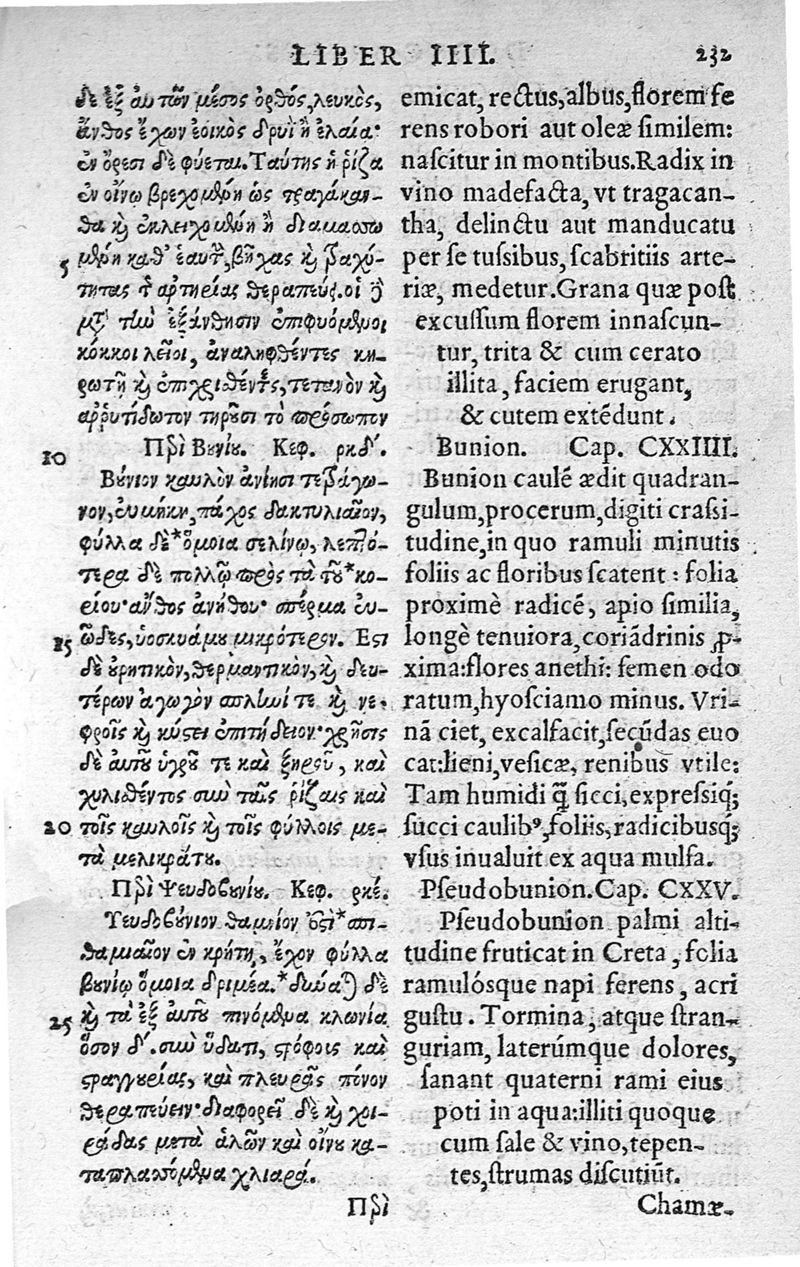 LIBER IIII. 232
δὲ ἐξ αὐτῶν μέσος ὀρθός, λευκὸς,
ἄνθος ἔχων ἐοικὸς δρυῒ ἢ ἐλαία·
ἐν ὄρεσι δὲ φύεται. Ταύτης ἡ ῥίζα
ἐν οἴνῳ βρεχομένη ὡς τραγάκαν-
θα καὶ ἐκλειχομένη ἢ διαμασσω
5 μένη καθ' ἑαυτὴν, βῆχας καὶ τραχύ-
τητας τ ἀρτηρίας θεραπεύει. οἱ δὲ
μετὰ τὴν ἐξάνθησιν ἐπιφυόμενοι
κόκκοι λεῖοι, ἀναληφθέντες κη-
ρωτῇ καὶ ἐπιχρισθέντες, τετανὸν καὶ
ἀρρυτίδωτον τηροῦσι τὸ πρόσωπον
10 Περὶ Βουνίου. Κεφ. ρκδ'.
Βούνιον καυλὸν ἀνίησι τετράγω-
νον, εὐμήκη, πάχος δακτυλιαῖον,
φύλλα δὲ*ὅμοια σελίνῳ, λεπτό-
τερα δὲ πολλῷ πρὸς τὰ τοῦ*κο-
ρίου· ἄνθος ἀνήθου· σπέρμα εὐ-
15 ῶδες, ὑοσκυάμου μικρότερον. Ἐστι
δὲ οὐρητικὸν, θερμαντικὸν, καὶ δευ-
τέρων ἀγωγὸν σπληνί τε καὶ νε-
φροῖς καὶ κύστει ἐπιτήδειον· χρῆσις
δὲ αὐτοῦ ὑγροῦ τε καὶ ξηροῦ, καὶ
χυλισθέντος σὺν ταῖς ῥίζαις καὶ
20 τοῖς καυλοῖς καὶ τοῖς φύλλοις με-
τὰ μελικράτου.
Περὶ Ψευδοβουνίου. Κεφ. ρκέ.
Ψευδοβούνιον θαμνίον ἐστὶ*σπι-
θαμιαῖον ἐν κρήτῃ, ἔχον φύλλα
βουνίῳ ὅμοια δριμέα.*δύναται δὲ
25 καὶ τὰ ἐξ αὐτοῦ πινόμενα κλωνία
ὅσον δ'. σὺν ὕδατι, στρόφοις καὶ
στραγγουρίας, καὶ πλευρᾶς πόνον
θεραπεύειν· διαφορεῖ δὲ καὶ χοι-
ράδας μετὰ ἁλῶν καὶ οἴνου κα-
ταπλασσόμενα χλιαρά.
Περὶ
emicat, rectus, albus, florem fe
rens robori aut oleæ similem:
nascitur in montibus. Radix in
vino madefacta, vt tragacan-
tha, delinctu aut manducatu
per se tussibus, scabritiis arte-
riæ, medetur. Grana quæ post
excussum florem innascun-
tur, trita & cum cerato
illita, faciem erugant,
& cutem extẽdunt.
Bunion. Cap. CXXIIII.
Bunion caulẽ ædit quadran-
gulum, procerum, digiti crassi-
tudine, in quo ramuli minutis
foliis ac floribus scatent: folia
proximè radicẽ, apio similia,
longè tenuiora, coriãdrinis ꝓ-
xima: flores anethi: semen odo
ratum, hyosciamo minus. Vri-
nã ciet, excalfacit, secũdas euo
cat: lieni, vesicæ, renibus vtile:
Tam humidi q̃ sicci, expressiq;
succi caulibꝰ, foliis, radicibusq;
vsus inualuit ex aqua mulsa.
Pseudobunion. Cap. CXXV.
Pseudobunion palmi alti-
tudine fruticat in Creta, folia
ramulósque napi ferens, acri
gustu. Tormina, atque stran-
guriam, laterúmque dolores,
sanant quaterni rami eius
poti in aqua: illiti quoque
cum sale & vino, tepen-
tes, strumas discutiũt.
Chamæ-